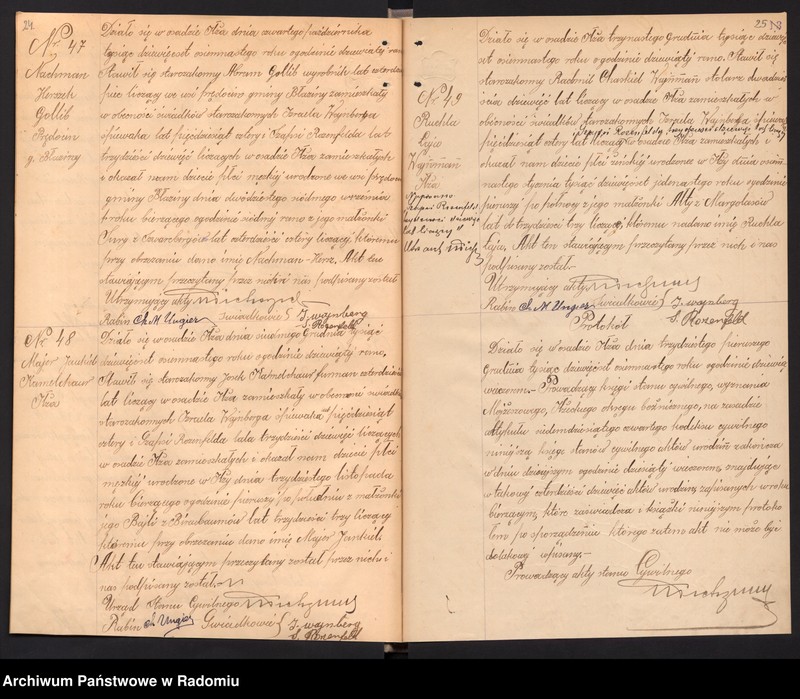 24
Nr 47
Nachman
Herszek
Gotlib
Prędocin
g. Błaziny
Działo się w osadzie Iłża dnia czwartego października
tysiąc dziewięćset osiemnastego roku ogodzinie dziewiątej rano
Stawił się starozakonny Abram Gotlib wyrobnik lat czterdzieści
pięć liczący we wsi Prędocin gminy Błaziny zamieszkały
w obecności świadków starozakonnych Izraela Wajnberga
śpiewaka lat pięćdziesiąt cztery i Szapsi Rozenfelda lat
trzydzieści dziewięć liczących w osadzie Iłża zamieszkałych
i okazał nam dziecię płci męzkiej urodzone we wsi Prędocin
gminy Błaziny dnia dwudziestego siódmego września
roku bieżącego ogodzinie siódmej rano z jego małżonki
lat czterdzieści cztery liczącej któremu
przy obrzezaniu dano imię Nachman-Hersz. Akt ten
stawiającym przeczytany przez nich i nas podpisany został
Utrzymujący akty
Rabin Ch. M. Ungier świadkowie { I. wajnberg
S. Rozenfeld
Nr 48
Majer Jankiel
Kamelchaur
Iłża
Działo się w osadzie Iłża dnia siódmego Grudnia tysiąc
dziewięćset osiemnastego roku ogodzinie dziewiątej rano,
Stawił się starozakonny Josek Kamelchaur furman czterdzieści
lat liczący w osadzie Iłża zamieszkały w obecności świadków
starozakonnych Izraela Wajnberga śpiewaka pięćdziesiąt
cztery i Szapsi Rozenfelda lata trzydzieści dziewięć liczących
w osadzie Iłża zamieszkałych i okazał nam dziecię płci
męzkiej urodzone w Iłży dnia trzydziestego listopada
roku bieżącego ogodzinie pierwszej po południu z małżonki
jego Bajli z Birenbaumów lat trzydzieści trzy liczącej
któremu przy obrzezaniu dano imię Majer Jankiel
Akt ten stawiającym przeczytany został przez nich i
nas podpisany został.
Urząd Stanu Cywilnego
Rabin Ch. Ungier Świadkowie { I. wajnberg
S. Rozenfeld
25
Nr 49
Ruchla
Łaja
Wajnman
Iłża
Działo się w osadzie Iłża trzynastego Grudnia tysiąc dziewięć
set osiemnastego roku ogodzinie dziewiątej rano. Stawił się
starozakonny Radomil Chaskiel Wajnman stolarz dwadzieś
cia dziewięć lat liczący w osadzie Iłża zamieszkały w
obecności świadków starozakonnych Izraela Wajnberga śpiewaka
i Szapsi Rozenfelda trzydzieści dziewięć lat liczący
pięćdziesiąt cztery lat liczących w osadzie Iłża zamieszkałych i
okazał nam dziecię płci żeńskiej urodzone w Iży dnia osiem
nastego stycznia tysiąc dziewięćset jedenastego roku ogodzinie
pierwszej po północy z jego małżonki z Margulesów
lat trzydzieści trzy liczącej, któremu nadano imię Ruchla
Łaja, Akt ten stawiającym przeczytany przez nich i nas
podpisany został.
Utrzymujący akty
Rabin Ch. M. Ungier świadkowie { I. wajnberg
S. Rozenfeld
Protokół
Działo się w osadzie Iłża dnia trzydziestego pierwszego
Grudnia tysiąc dziewięćset osiemnastego roku ogodzinie dziewiątej
wieczorem. Prowadzący księgi stanu cywilnego, wyznania
Mojżeszowego, Iłżeckiego okręgu bożniczego, na zasadzie
artykułu siedemdziesiątego czwartego kodeksu cywilnego
niniejszą księgę stanu cywilnego aktów urodzin zakończa
w dniu dzisiejszym ogodzinie dziewiątej wieczorem, znajdując
w takowej czterdzieści dziewięć aktów urodzin, zapisanych w roku
bieżącym, które zaświadcza i książki niniejszym protoko
łem po sporządzeniu którego żaden akt nie może być
do takowej wpisany.-
Prowadzący akty stanu Cywilnego
Archiwum Państwowe w Radomiu